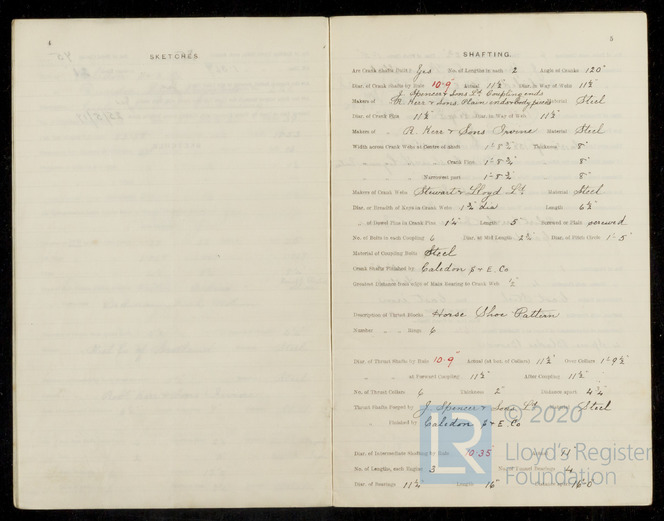 4
SKETCHES.
5
SHAFTING.
Are Crank Shafts Built? Yes No. of Lengths in each 2 Angle of Cranks 120°
Diar. of Crank Shafts by Rule 10·9" Actual 11½" Diar. in Way of Webs 11½"
J. Spencer & Sons Ld. Coupling ends
Makers of R. Kerr & Sons. Plain underbody pieces Material Steel
Diar. of Crank Pins 11½" Diar. in Way of Web 11½"
Makers of " R. Kerr & Sons Irvine Material Steel
Width across Crank Webs at Centre of Shaft 1'-8¾" Thickness 8"
" " " " Crank Pins 1'-8¾" " 8"
" " " Narrowest part 1'-8¾" " 8"
Makers of Crank Webs Stewart & Lloyd Ld. Material Steel
Diar. or Breadth of Keys in Crank Webs 1¾" dia Length 6½"
" of Dowel Pins in Crank Pins 1¼" Length 5" Screwed or Plain screwed
No. of Bolts in each Coupling 6 Diar. at Mid Length 2¾" Diar. of Pitch Circle 1'-5"
Material of Coupling Bolts Steel
Crank Shafts Finished by Caledon S & E. Co
Greatest Distance from edge of Main Bearing to Crank Web ½"
Description of Thrust Blocks Horse Shoe Pattern
Number " " Rings 6
Diar. of Thrust Shafts by Rule 10·9" Actual (at bot. of Collars) 11½" Over Collars 1'-9½"
" " at Forward Coupling 11½" After Coupling 11½"
No. of Thrust Collars 6 Thickness 2" Distance apart 4¼"
Thrust Shafts Forged by J. Spencer & Sons Ld. Material Steel
" Finished by Caledon S & E. Co
Diar. of Intermediate Shafting by Rule 10·35"
No. of Lengths, each Engine 3 No. of Tunnel Bearings 4
Diar. of Bearings 11¼" Length 16" Distance apart 16'-0"
LR
© 2020
Lloyd's Register
Foundation